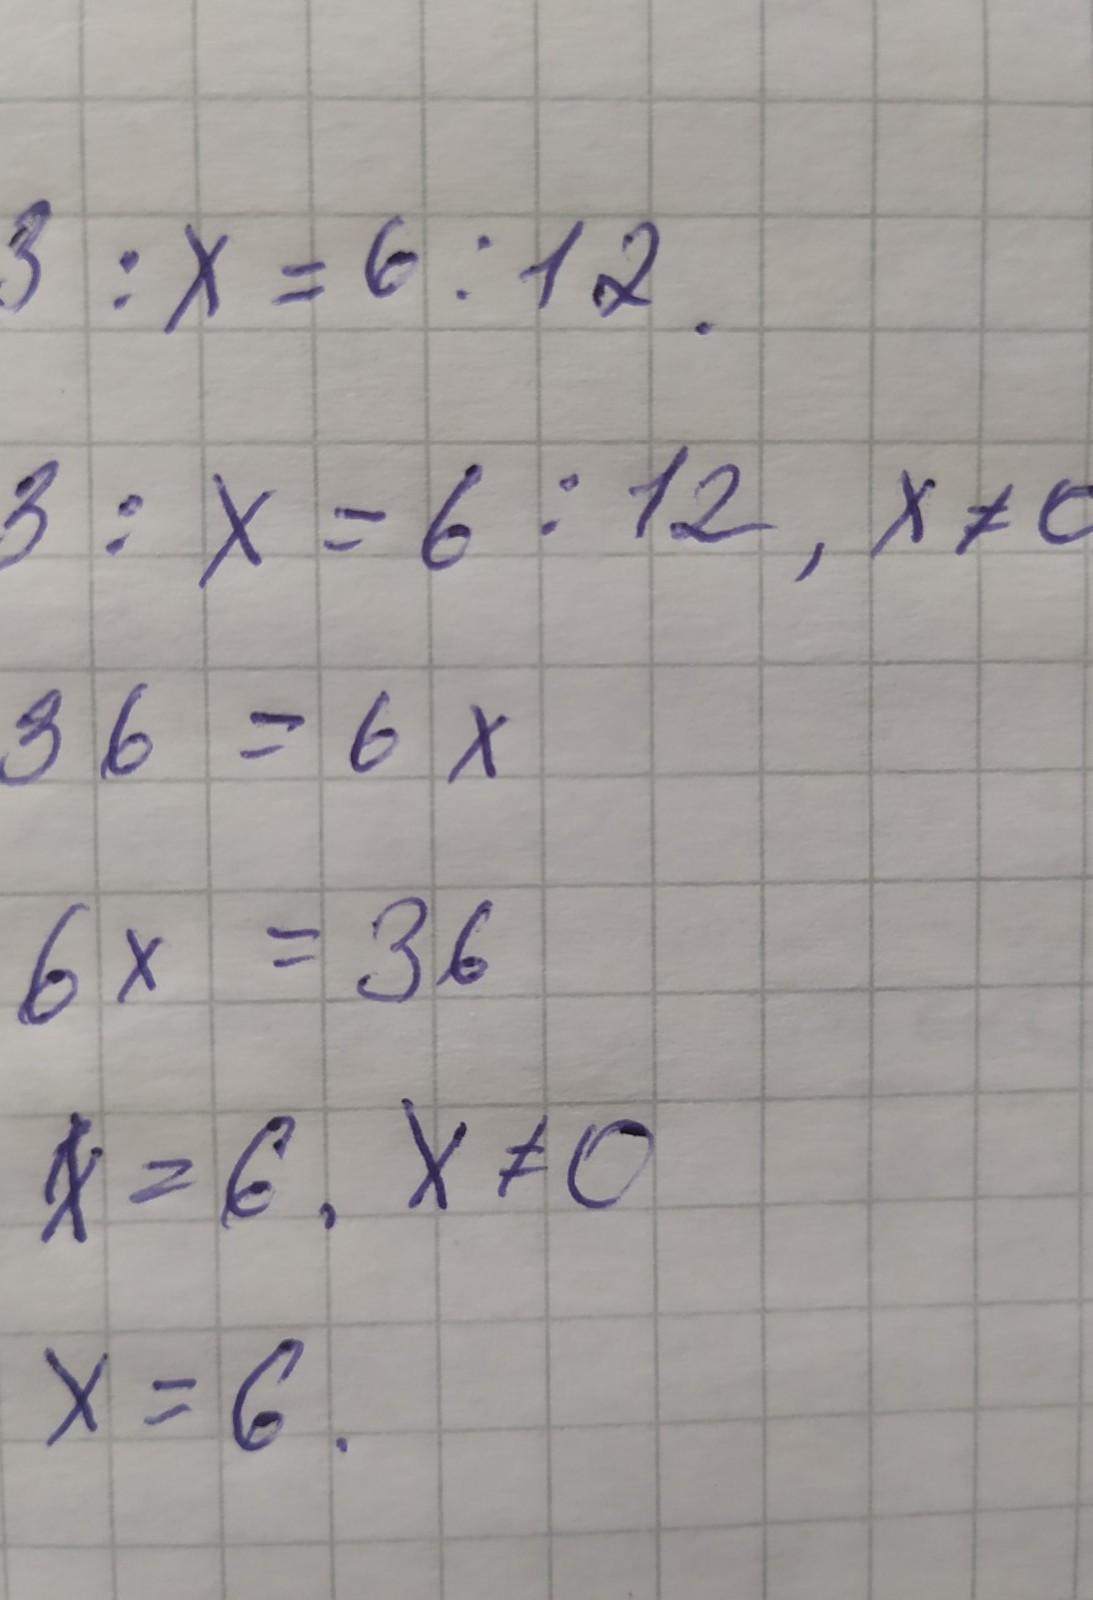 3 : x = 6 : 12.
3 : x = 6 : 12, x ≠ 0
36 = 6x
6x = 36
x = 6, x ≠ 0
x = 6.